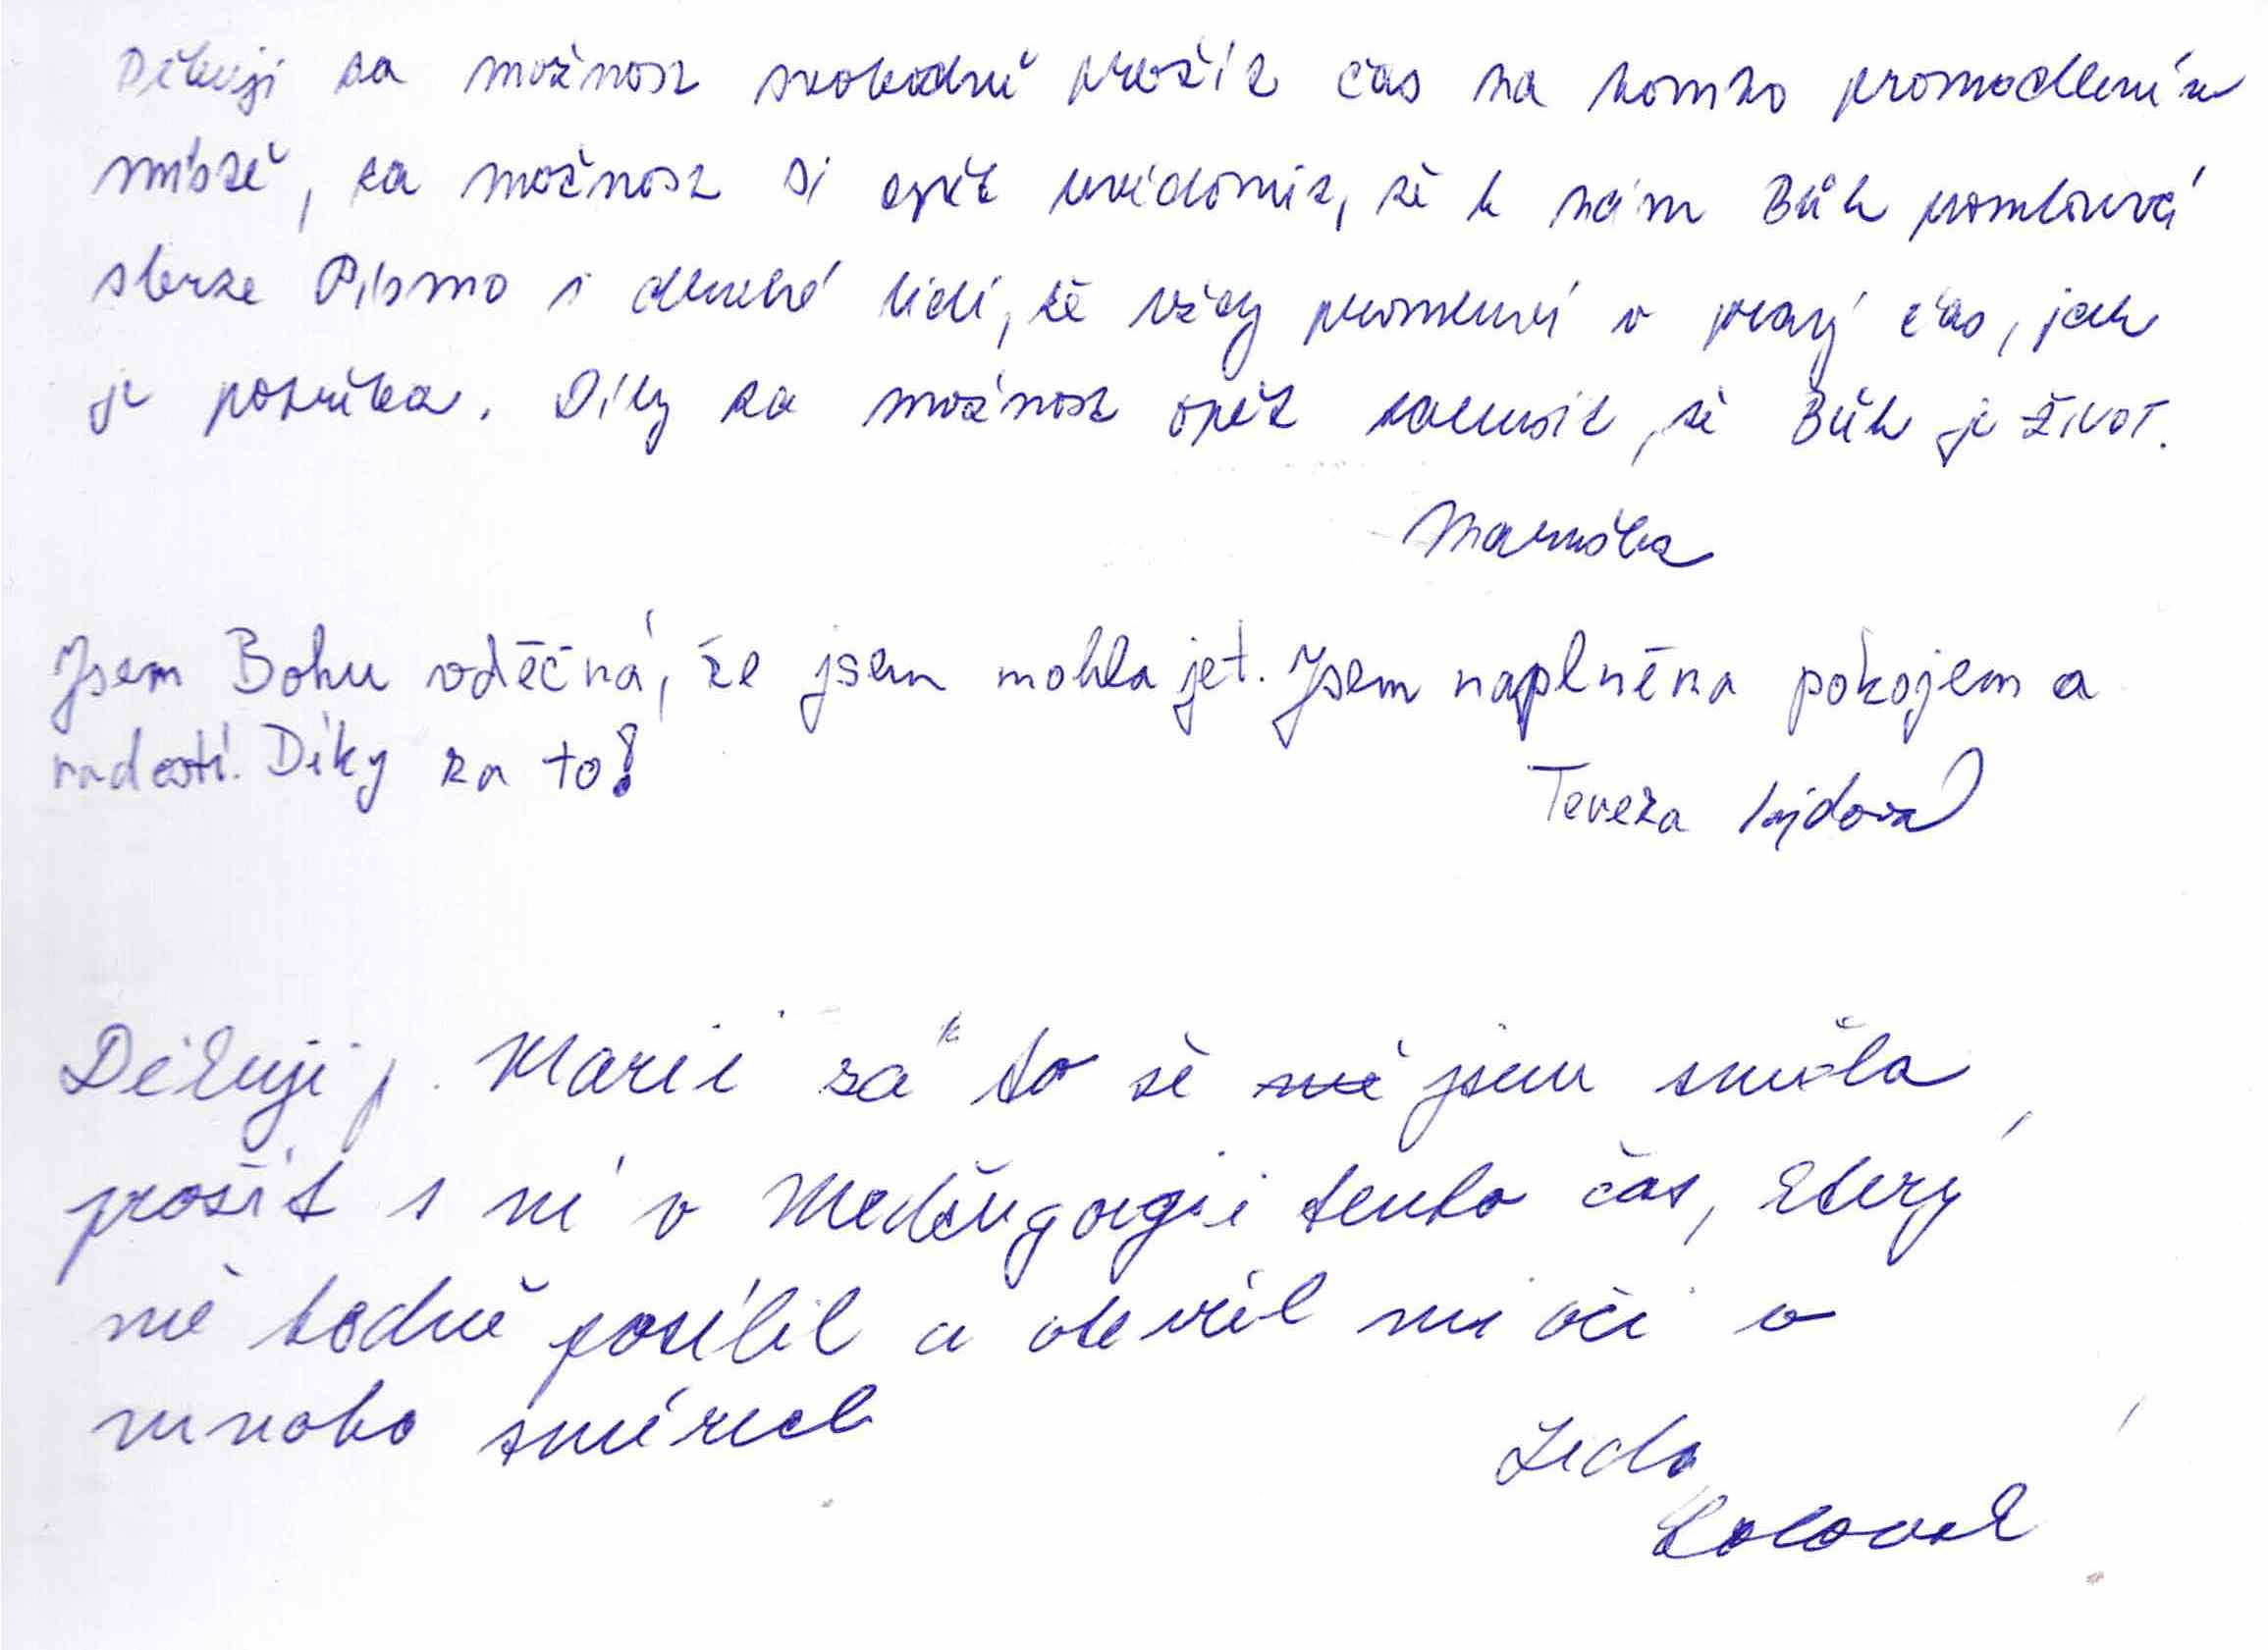 Děkuji za možnost svobodně prožít čas na tomto promodleném
místě, za možnost si opět uvědomit, že k nám Bůh promlouvá
skrze Písmo i druhé lidi, že vždy promluví v pravý čas, jak
je potřeba. Díky za možnost opět zakusit, že Bůh je ŽIVOT.
Maruška
Jsem Bohu vděčná, že jsem mohla jet. Jsem naplněna pokojem a
radostí. Díky za to!
Tereza
Děkuji p. Marii za to že jsem směla
prožít s ní v Medžugorji tento čas, který
mě hodně posílil a otevřel mi oči v
mnoha směrech